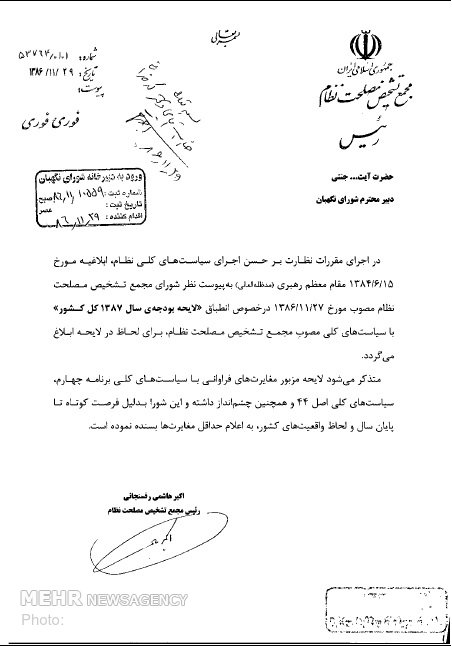 بسمه تعالی
جمهوری اسلامی ایران
مجمع تشخیص مصلحت نظام
رئیس
شماره: ۰۱۰۱/۵۳۷۶۴
تاریخ: ۱۳۸۶/۱۱/۲۹
پیوست:
فوری فوری
ورود به دبیرخانه شورای نگهبان
شماره ثبت: ۱۰۵۵۹/۸۶/۱۱ صبح
تاریخ ثبت: عصر
اقدام کننده: ۸۶،۱۱،۲۹
۸۶،۱۱،۲۹
حضرت آیت... جنتی
دبیر محترم شورای نگهبان
در اجرای مقررات نظارت بر حسن اجرای سیاست‌های کلی نظام، ابلاغیه مورخ
۱۳۸۴/۶/۱۵ مقام معظم رهبری (مدظله‌العالی) به‌پیوست نظر شورای مجمع تشخیص مصلحت
نظام مصوب مورخ ۱۳۸۶/۱۱/۲۷ درخصوص انطباق «لایحه بودجه‌ی سال ۱۳۸۷ کل کشور»
با سیاست‌های کلی مصوب مجمع تشخیص مصلحت نظام، برای لحاظ در لایحه ابلاغ
می‌گردد.
متذکر می‌شود لایحه مزبور مغایرت‌های فراوانی با سیاست‌های کلی برنامه چهارم،
سیاست‌های کلی اصل ۴۴ و همچنین چشم‌انداز داشته و این شورا بدلیل فرصت کوتاه تا
پایان سال و لحاظ واقعیت‌های کشور، به اعلام حداقل مغایرت‌ها بسنده نموده است.
اکبر هاشمی رفسنجانی
رئیس مجمع تشخیص مصلحت نظام
MEHR NEWSAGENCY
Photo: